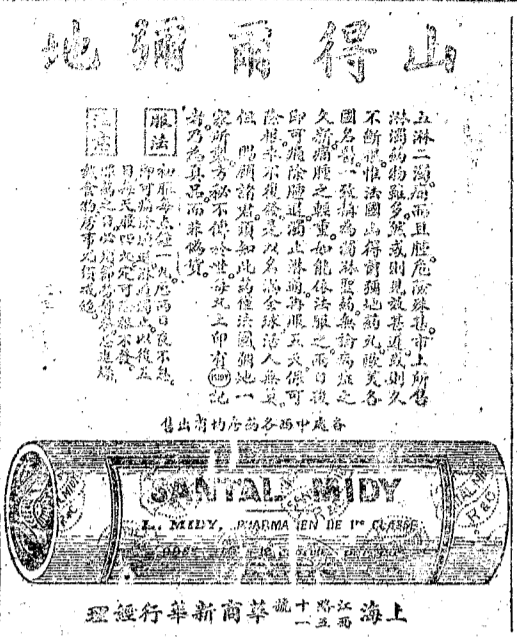 山得爾彌地
五淋二濁痛而且腫危險殊甚市上所售
淋濁藥物雖多然或則見效甚遲或則久
不斷根惟法國山得爾彌地藥丸歐美各
國名醫一致稱為濁淋聖藥無論病症之
久新痛腫之輕重如能依法服之兩日後
即可痛除腫退濁止淋通再服五天保可
除根永不復發是以名滿全球活人無算
但賜顧諸君須知此藥種法國彌地一
家所製方秘不傳於世每丸上印有MIDY記
者乃為真品而非偽貨
服法
初服每點鐘一丸應兩日夜不熄
即可痛除腫退淋通濁止以後五
日每天服四次定可除根不發
注意
各處中西各藥房均有出售
SANTAL MIDY
L. MIDY, PHARMACIEN DE 1re CLASSE
上海江西路五十一號華商新華行經理